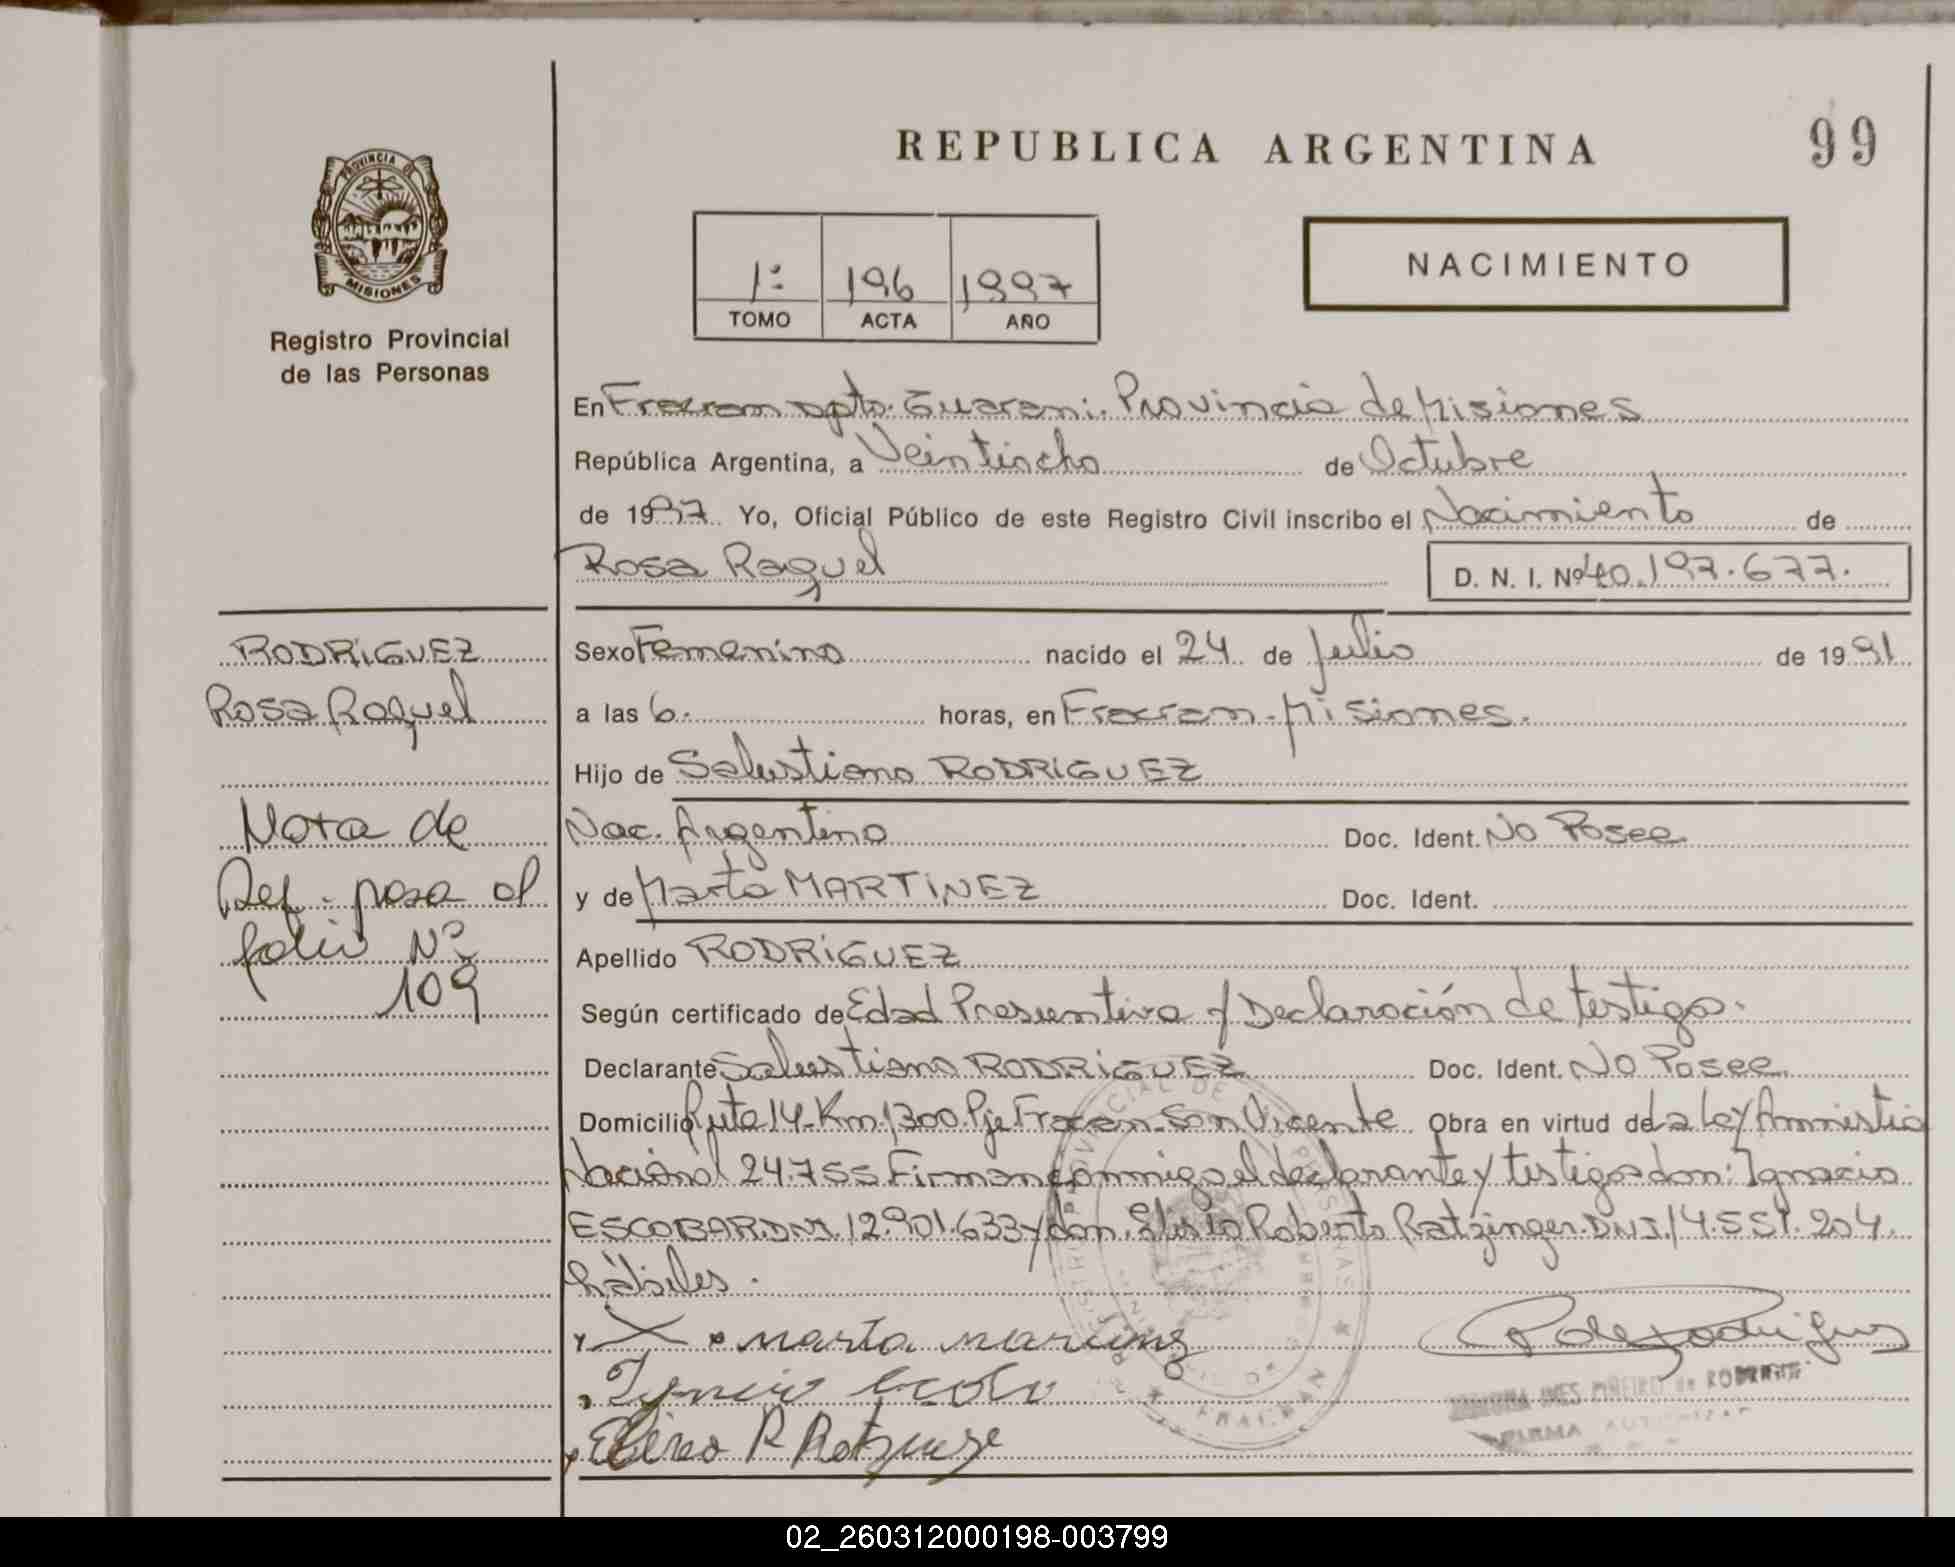 REPUBLICA ARGENTINA
99
PROVINCIA DE
MISIONES
Registro Provincial
de las Personas
1º 196 1997
TOMO ACTA AÑO
NACIMIENTO
En Fracram Dpto. Guarani. Provincia de Misiones
República Argentina, a Veintiocho de Octubre
de 1997. Yo, Oficial Público de este Registro Civil inscribo el Nacimiento de
Rosa Raquel
D. N. I. Nº 40.197.677.
RODRIGUEZ
Rosa Raquel
Nota de
Ref. pasa al
folio Nº
109
Sexo Femenino nacido el 24 de Julio de 1991
a las 6. horas, en Fracram - Misiones.
Hijo de Salustiano RODRIGUEZ
Nac. Argentino Doc. Ident. No Posee
y de Marta MARTINEZ Doc. Ident.
Apellido RODRIGUEZ
Según certificado de Edad Presuntiva y Declaración de testigo.
Declarante Salustiano RODRIGUEZ Doc. Ident. No Posee
Domicilio Ruta 14-Km.1300.Pje Fracram-San Vicente Obra en virtud de La Ley Amnistia
Nacional 24.755 Firman conmigo el declarante y testigos don: Ignacio
ESCOBAR.DNI.12.901.633 y don. Roberto Ratzinger.DNI.14.551.204.
hábiles.
X marta
Ignacio
R
FIRMA AUTORIZADA
02_260312000198-003799